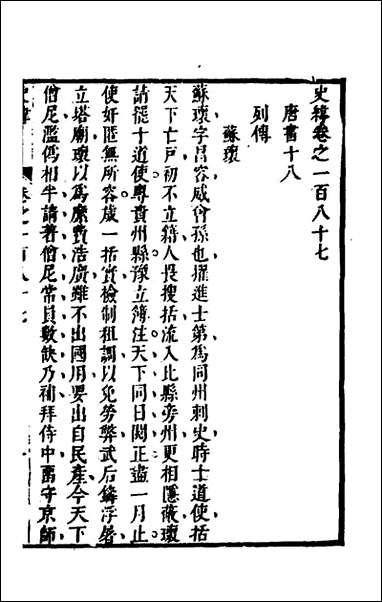 史緯卷之一百八十七
唐書十八
列傳
蘇瓌
蘇瓌字昌容威曾孫也擢進士第爲同州刺史時士道使括
天下亡戸初不立籍人畏搜括流入比縣旁州更相隱蔽瓌
請罷十道使專責州縣豫立簿注天下同日閱正盡一月止
使奸匿無所容歲一括實檢制租調以免勞弊武后鑄浮屠
立塔廟瓌以爲糜費浩廣雖不出國用要出自民產今天下
僧尼濫偽相半請著僧尼常員數缺乃補拜侍中留守京師
卷之一百八十七